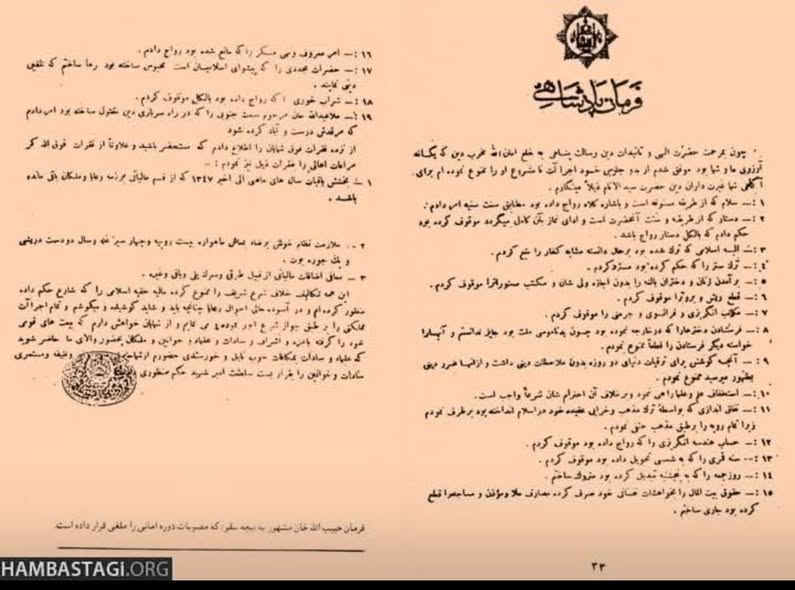 فرمان پادشاهی
چون بمرحمت حضرت الهی و تائیدات دین رسالت پناهی به خلع امان الله مخرب دین که یگانه
آرزوی ما و شما بود موفق شدم از بدو جلوس خود اجرا آت نا مشروع او را ممنوع نموده ام برای
آگاهی شما غیرت داران دین حضرت سید الانام ذیلاً مینگارم .
۱ :— سلام که از طریقه مسنونه است و باشاره کلاه رواج داده بود مطابق سنت سنیه امر دادم .
۲ :— دستار که از طریقه و سنت آنحضرت است و ادای نماز بآن کامل میگردد موقوف کرده بود
حکم دادم که بالکل دستار رواج باشد .
۳ :— البسه اسلامی که ترك شده بود برحال دانسته مشابه کفار را منع کردم .
۴ :— ترك ستر را که حکم کرده بود مسترد کردم .
۵ :— برآمدن زنان و دختران بالغه را بدون اجازه ولی شان و مکتب مستورات را موقوف کردم .
۶ :— قطع ریش و بروت را موقوف کردم .
۷ :— مکاتب انگریزی و فرانسوی و جرمنی را موقوف کردم .
۸ :— فرستادن دخترها را که در خارجه نموده بود چون بدناموسی ملت بود جایز ندانستم و آنها را
خواسته دیگر فرستادن را قطعاً ممنوع نمودم .
۹ :— آنچه کوشش برای ترقیات دنیای دو روزه بدون ملاحظات دینی داشت و از آنها ضرر دینی
بظهور میرسید ممنوع نمودم .
۱۰ :— استخفاف علم و علما را می نمود و برخلاف آن احترام شان شرعاً واجب است .
۱۱ :— نفاق اندازی که بواسطهٔ ترك مذهب و خرابی عقیده خود در اسلام انداخته بود برطرف نمودم
زیرا تمام رویه را برطبق مذهب حنفی نمودم .
۱۲ :— حساب هندسه انگریزی را که رواج داده بود موقوف کردم .
۱۳ :— سنه قمری را که به شمسی تحویل داده بود موقوف کردم .
۱۴ :— روز جمعه را که به پنجشنبه تبدیل کرده بود متروك ساختم .
۱۵ :— حقوق بیت المال را بخواهشات نفسانی خود صرف کرده مصارف ملا و مؤذن و مساجد را قطع
کرده بود جاری ساختم .
۲۳
۱۶ :— امر معروف و نهی منکر را که مانع شده بود رواج دادم .
۱۷ :— حضرات مجددی را که پیشوای اسلامیان است محبوس ساخته بود رها ساختم که تلقین
دینی نمایند .
۱۸ :— شراب خوری را که رواج داده بود بالکل موقوف کردم .
۱۹ :— ملا عبدالله خان مرحوم سمت جنوبی را که در راه سربازی دین مقتول ساخته بود امر دادم
که مرقدش درست و آباد کرده شود
از نزده فقرات فوق شمایان را اطلاع دادم که مستحضر باشید و علاوتاً از فقرات فوق الذکر
مراعات اهالی را بفقرات ذیل نیز نمودم : ..
۱ — بخشش باقیات سال های ماضی الی اخیر ۱۳۴۷ که از قسم مالیاتی برذمه رعایا و ملکان باقی مانده
باشد .
۲ — ملازمت نظام خوش برضاء بمعاش ماهواره بیست روپیه و چهار سیر غله و سال دو دست دریشی
و یك جوره بوت .
۳ — معافی اضافات مالیاتی از قبیل طرق و سرك پلی و باقی وغیره .
این همه تکالیف خلاف شرع شریف را ممنوع کرده مالیه حقه اسلامی را که شارع حکم داده
منظور کرده ام و در آسوده حالی احوال رعایا چنانچه باید و شاید کوشیده و میکوشم و تمام اجراآت
مملکتی را بر طبق جواز شرع انور نموده و می نمایم و از شمایان خواهش دارم که بیعت های قومی
خود را گرفته بامزه و اشراف و سادات و علماء و خوانین و ملکان بحضور والای ما حاضر شوید
که علماء و سادات بمکافات خوب نایل و خورسندی حضورم وظیفه و مستمری
سادات و خوانین را بقرار بست سلطنت امیر شهید حکم منظوری
فرمان حبیب الله خان مشهور به بچه سقو؛ که مصوبات دوره امانی را ملغی قرار داده است.
HAMBASTAGI.ORG